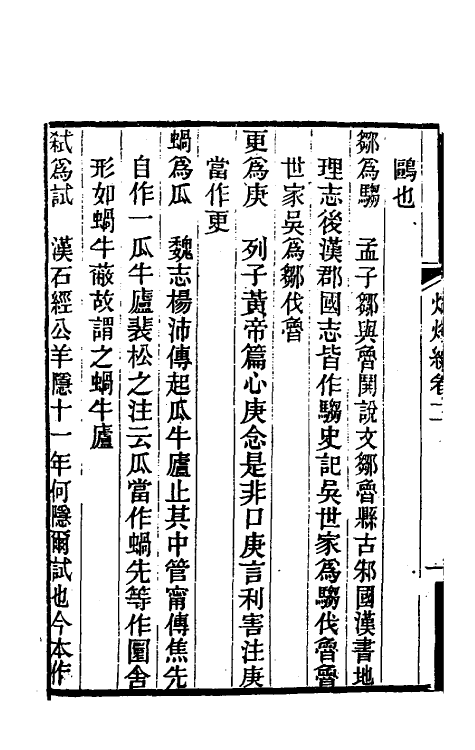 鷗也
鄒爲騶　孟子鄒與魯鬨說文鄒魯縣古邾國漢書地
理志後漢郡國志皆作騶史記吳世家爲騶伐魯魯
世家吳爲鄒伐魯
更爲庚　列子黃帝篇心庚念是非口庚言利害注庚
當作更
蝸爲瓜　魏志楊沛傳起瓜牛廬止其中管甯傳焦先
自作一瓜牛廬裴松之注云瓜當作蝸先等作圜舍
形如蝸牛蔽故謂之蝸牛廬
弒爲試　漢石經公羊隱十一年何隱爾試也今本作